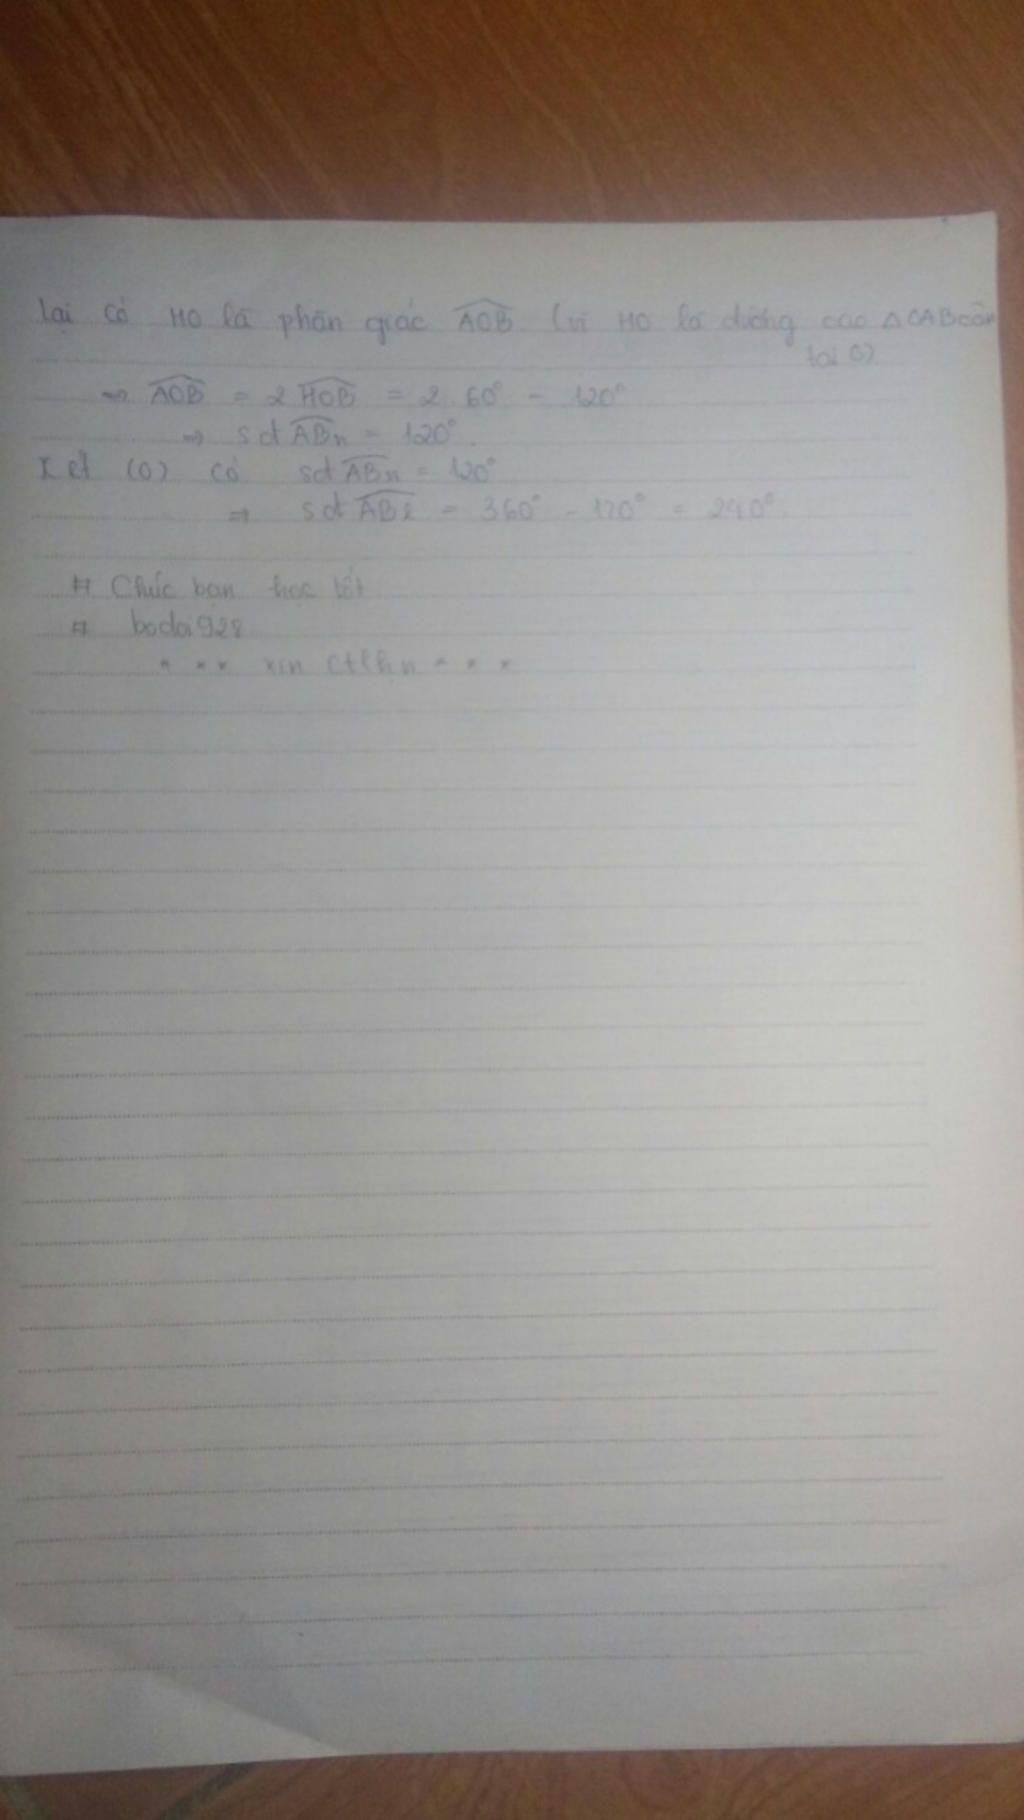 lại có HO là phân giác AOB (vì HO là đường cao △OAB cân
tại O)
=> AOB = 2 HOB = 2. 60° = 120°
=> sđ ABn = 120°.
Xét (O) có sđ ABn = 120°
=> sđ ABl = 360° - 120° = 240°.
# Chúc bạn học tốt
# bodoi928
* * * xin ctlhn * * *